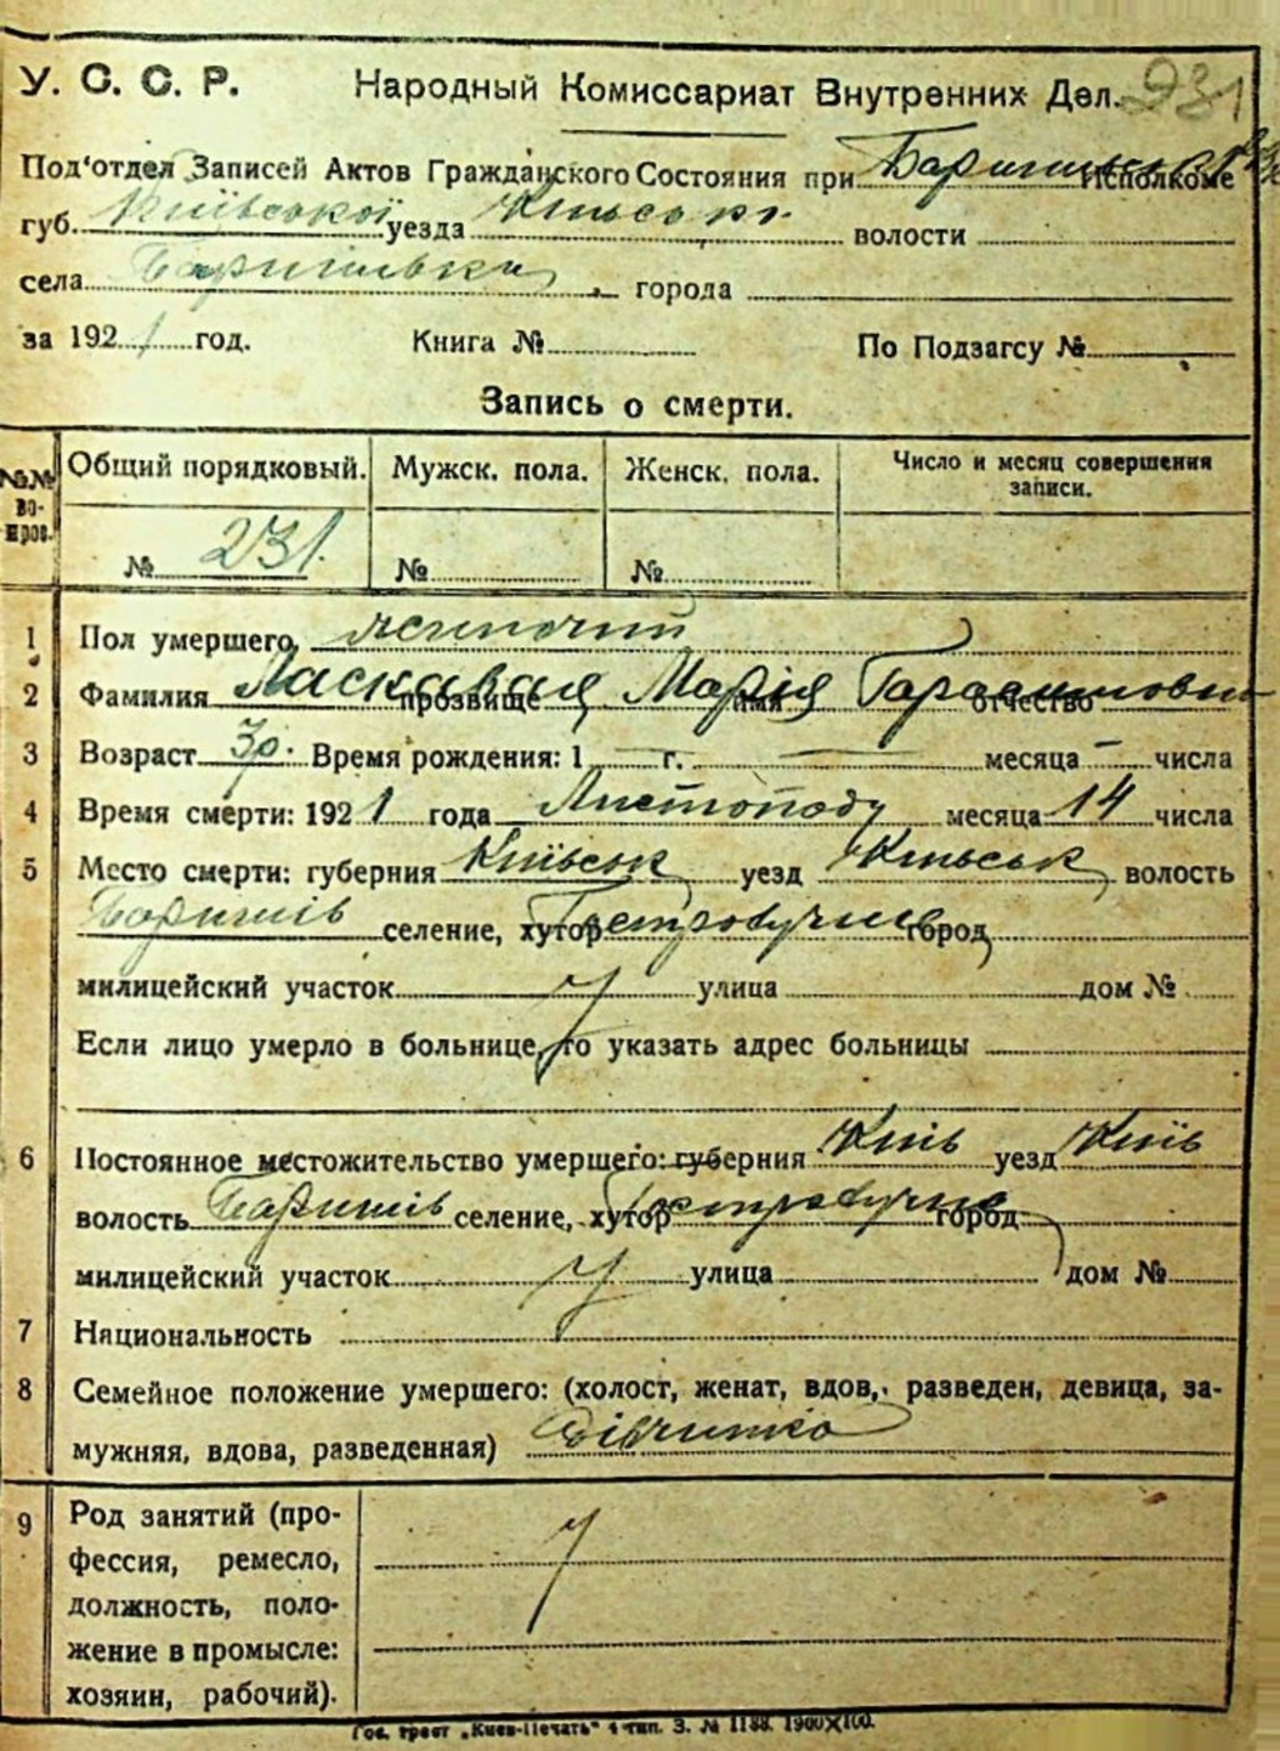 231
У. С. С. Р. Народный Комиссариат Внутренних Дел.
Под'отдел Записей Актов Гражданского Состояния при Исполкоме
губ. Київської уезда Київсько волости
села Баришівки города
за 1921 год. Книга № По Подзагсу №
Запись о смерти.
№№ во-пров. Общий порядковый. Мужск. пола. Женск. пола. Число и месяц совершения записи.
№ 231. № №
1 Пол умершего жиночий
2 Фамилия Ласкавая прозвище Марія имя Гарасимовна отчество
3 Возраст 3р. Время рождения: 1 г. месяца числа
4 Время смерти: 1921 года Листопаду месяца 14 числа
5 Место смерти: губерния Київськ уезд Київськ волость
Баришів селение, хутор город
милицейский участок улица дом №
Если лицо умерло в больнице, то указать адрес больницы
6 Постоянное местожительство умершего: губерния Київ уезд Київ
волость Баришів селение, хутор город
милицейский участок улица дом №
7 Национальность
8 Семейное положение умершего: (холост, женат, вдов, разведен, девица, за-
мужняя, вдова, разведенная) дівчинка
9 Род занятий (про-
фессия, ремесло,
должность, поло-
жение в промысле:
хозяин, рабочий).
Гос. трест „Киев-Печать" 4 тип. З. № 1188. 1900X100.